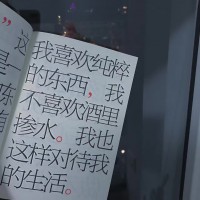 这
是
我喜欢纯粹
的东西，我
不喜欢酒里
掺水。我也
这样对待我
的生活。